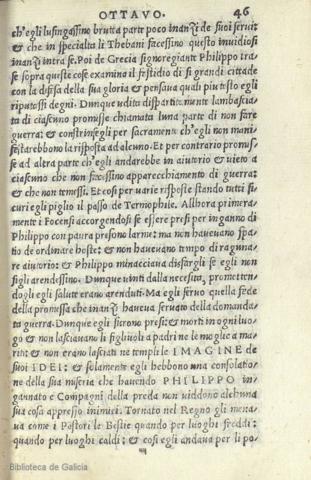 OTTAVO. 46
ch'egli lusingassino brutta parte poco inanzi de suoi serui:
& che in specialta li Thebani facessino questo inuidiosi
inanzi intra se. Poi de Grecia signoregiante Philippo tra=
se sopra queste cose examina il fastidio di si grandi cittade
con la difesa della sua gloria & pensaua quali piu tosto egli
riputassi degni. Dunque udita dispartitamente lambascia=
ta di ciascuno promisse chiamata luna parte di non fare
guerra: & constrinsegli per sacramento ch'egli non mani
festarebbono la risposta ad alcuno. Et per contrario promis=
se ad altra parte ch'egli andarebbe in aiutorio & uieto a
ciascuno che non facessino apparecchiamento di guerra:
& che non temessi. Et cosi per uarie risposte stando tutti si
curi egli piglio il passo de Termophile. Allhora primera=
mente i Focensi accorgendosi se essere presi per inganno di
Philippo con paura presono larme: ma non haueuano spa=
tio de ordinare hoste: & non haueuano tempo di raguna=
re aiutorio: & Philippo minacciaua disfargli se egli non
figli arendessino. Dunque uinti dalla necessita, prometten=
dogli egli salute erano arenduti. Ma egli seruo quella fede
della promessa che inanzi haueua seruato della domanda=
ta guerra. Dunque egli furono presi: & morti in ogni luo=
go & non lasciauano li figliuoli a padri ne le moglie a ma=
riti: & non erano lasciati ne templi le IMAGINE de
suoi IDEI: & solamente egli hebbono una consolatio=
ne della sua miseria che hauendo PHILIPPO in=
gannato e Compagni della preda non uiddono alchuna
sua cosa appresso inimici. Tornato nel Regno gli mena=
ua come i Pastori le Bestie quando per luoghi freddi:
quando per luoghi caldi: & cosi egli andaua per li po=
Biblioteca de Galicia